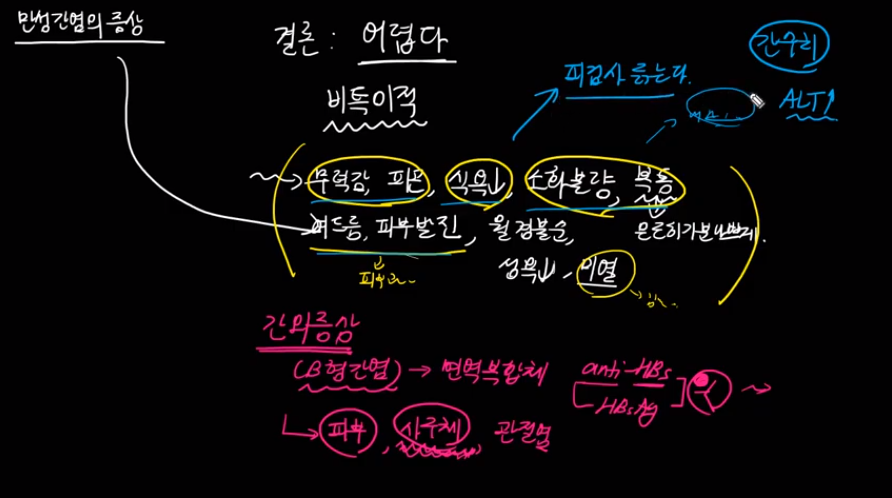 만성간염의 증상
결론 : 어렵다
간수치
피검사 긁는다.
ALT↑
비특이적
무력감, 피곤, 식욕↓, 소화불량, 복통
여드름, 피부발진, 월경불순, 은근히 기분나쁘게.
피부과~
성욕↓, 미열
간외증상
(B형간염) → 면역복합체
anti-HBs
HBsAg
피부, 사구체, 관절염